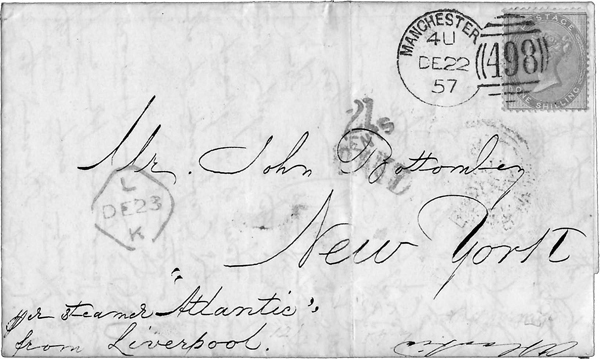 MANCHESTER
4U
DE22
57
498
POSTAGE
ONE SHILLING
Mr. John Bottomley
New York
L
DE23
K
per steamer "Atlantic"
from Liverpool.